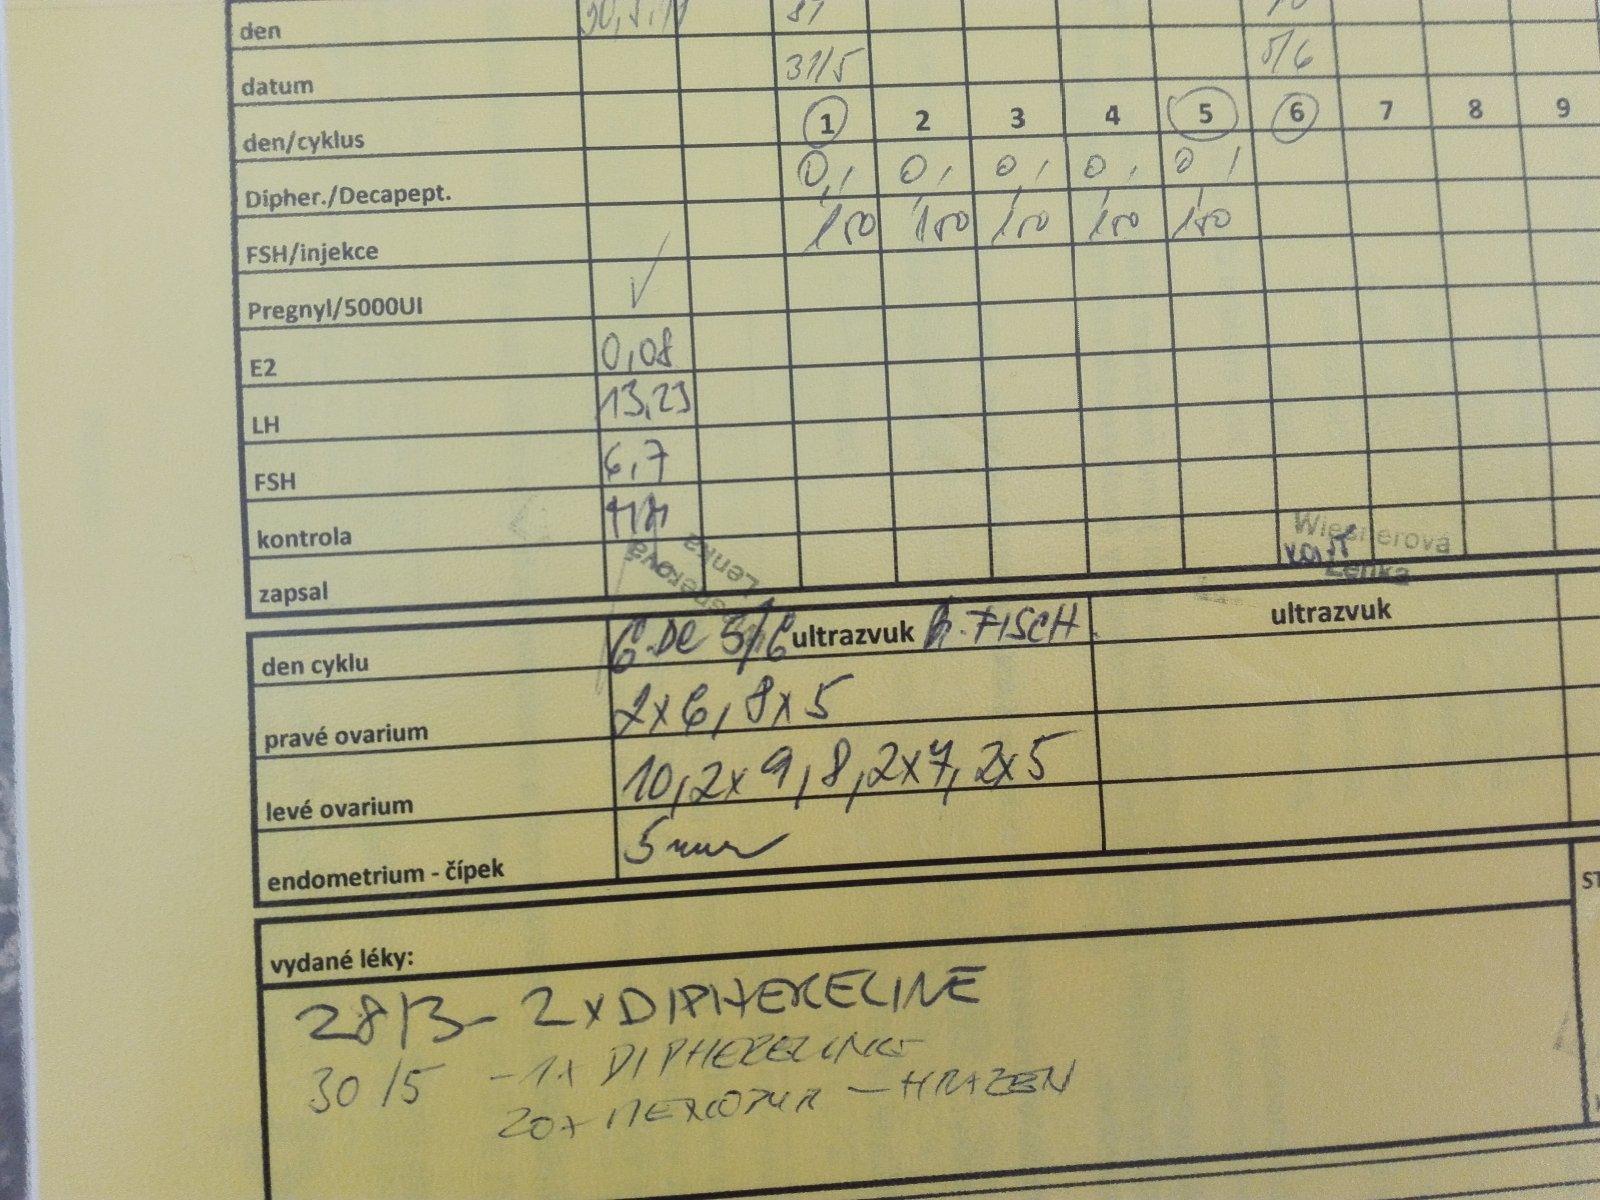 den
datum 31/5 5/6
den/cyklus 1 2 3 4 5 6 7 8 9
Dipher./Decapept. 0,1 0,1 0,1 0,1 0,1
FSH/injekce 150 150 150 150 150
Pregnyl/5000UI ✓
E2 0,08
LH 13,23
FSH 6,7
kontrola
zapsal Lenka Wiesnerová Lenka
den cyklu 6.DC 5/6 ultrazvuk FISCH ultrazvuk
pravé ovarium 2x6, 8x5
levé ovarium 10, 2x9, 8, 2x7, 2x5
endometrium - čípek 5 mm
vydané léky:
28/3 - 2x DIPHERELINE
30/5 - 1x DIPHERELINE
20x MENOPUR - HRAZEN